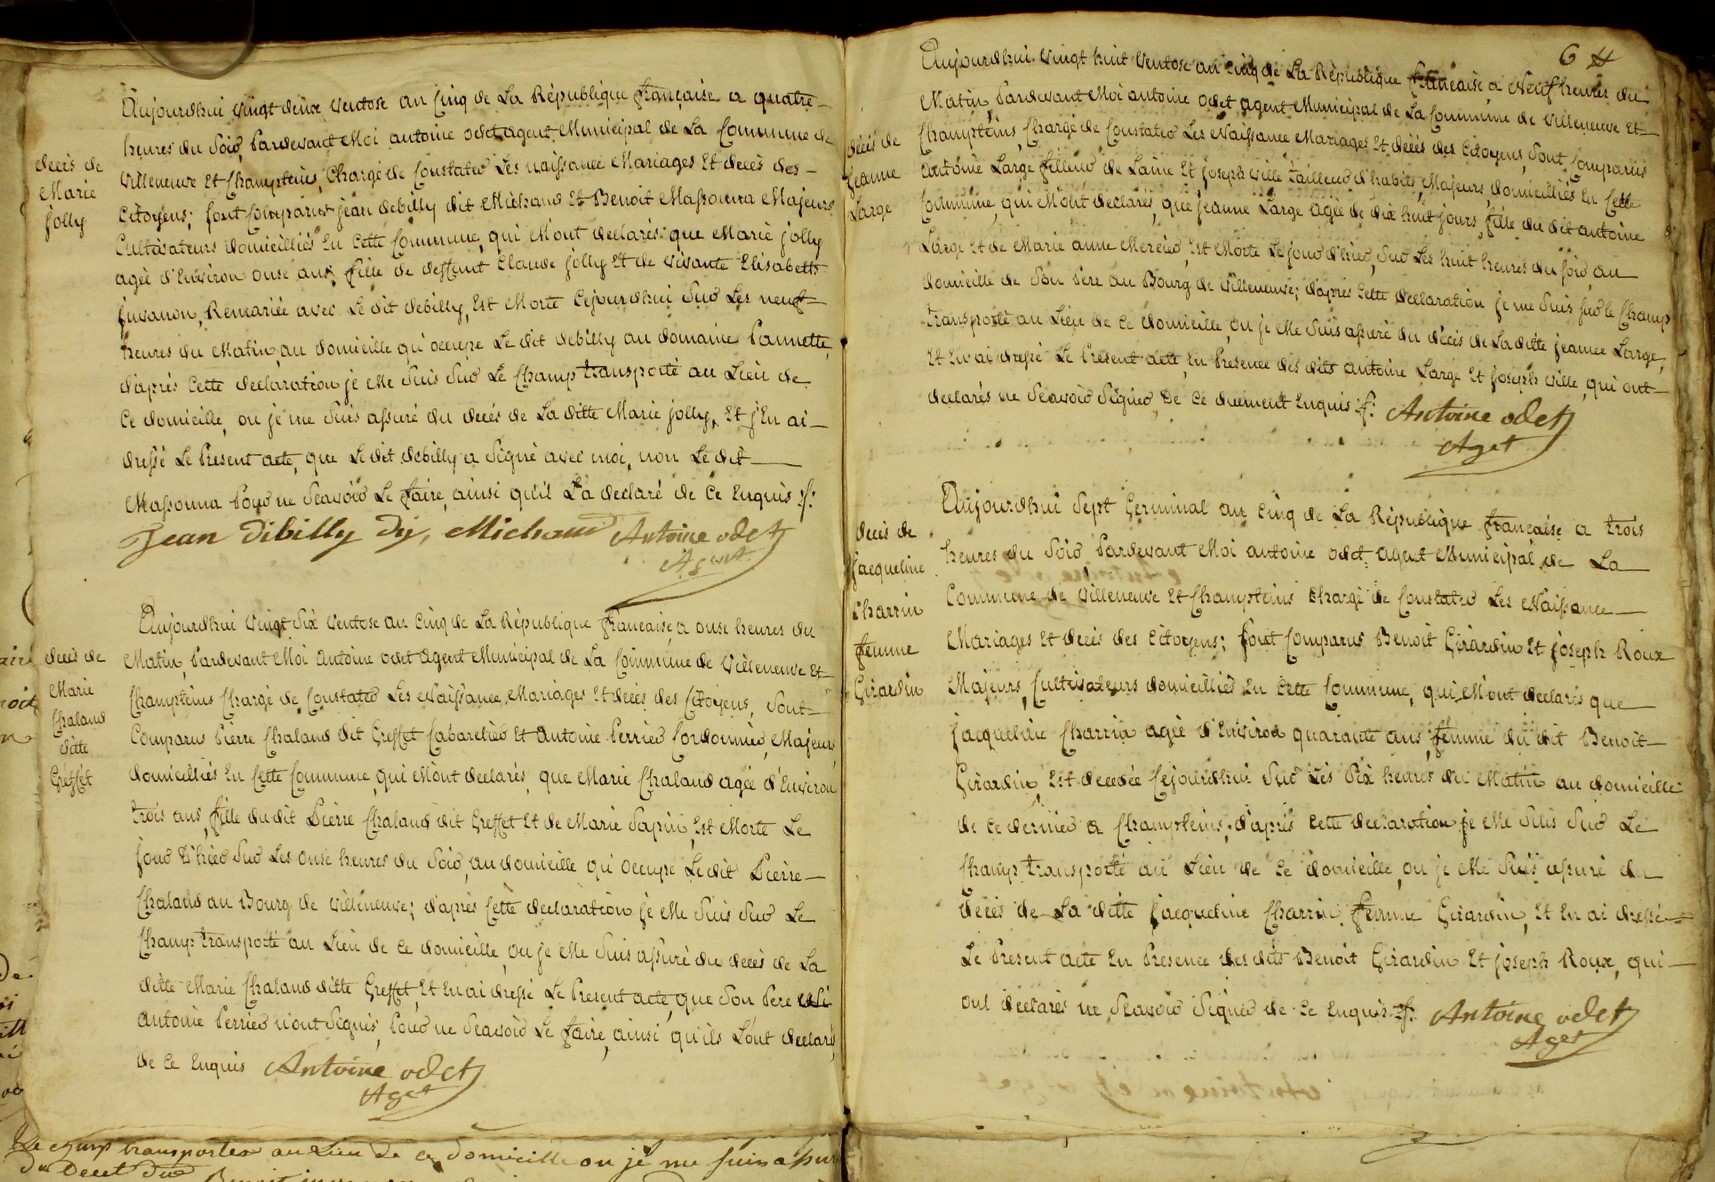 décès de
Marie
jolly
Aujourdhui vingt deux ventose an Cinq de La République française a quatre
heures du Soir, Pardevant Moi antoine odet agent Municipal de La Commune de
villeneuve Et Champteins, Chargé de Constater Les naissance Mariages Et décès des
Citoyens; sont Comparus jean debilly dit Michaud Et Benoit Massonna Majeurs
Cultivateurs domicilliés En Cette Commune, qui M'ont declarés que Marie jolly
agée d'Environ onse ans, fille de deffunt Claude jolly Et de vivante Elisabeth
juvanon, Remariée avec Le dit debilly, Est Morte Cejourdhui Sur Les neuf
heures du Matin, au domicille qu'occupe Le dit debilly au domaine Pannette,
d'après Cette declaration je Me Suis Sur Le Champ transporté au Lieu de
Ce domicille, ou je me Suis assuré du decés de La ditte Marie jolly, Et j'En ai
dressé Le Present acte, que Le dit debilly a Signé avec moi, non Le dit
Massonna Pour ne Scavoir Le faire, ainsi qu'il L'a declaré de Ce Enquis ./.
Jean Dibilly Dy, Michaud Antoine odet
Agent
décés de
Marie
Chaland
ditte
Greffet
Aujourdhui vingt Six ventose an Cinq de La République francaise, a onse heures du
Matin, Pardevant Moi Antoine odet Agent Municipal de La Commune de Villeneuve Et
Champteins Chargé de Constater Les Naissance, Mariages Et décés des Citoyens, Sont
Comparus Pierre Chaland dit Greffet Cabaretier Et Antoine Perrier Cordonnier, Majeurs,
domicilliés En Cette Commune, qui M'ont declarés, que Marie Chaland agée d'Environ
trois ans, fille dudit Pierre Chaland dit Greffet Et de Marie Sapin, Est Morte Le
jour d'hier Sur Les onse heures du Soir, au domicille qu'occupe Ledit Pierre
Chaland au Bourg de villeneuve; d'après Cette declaration je Me Suis Sur Le
Champ transporté au Lieu de Ce domicille, ou je Me Suis assuré du decés de La
ditte Marie Chaland ditte Greffet, Et En ai dressé Le Present acte, que Son Pere
antoine Perrier n'ont Signés, Pour ne Scavoir Le faire, ainsi qu'ils L'ont declarés,
de Ce Enquis Antoine odet
Aget
6
décés de
Jeanne
Large
Aujourdhui vingt huit ventose an Cinq de La République francaise, a Neuf heures du
Matin, Pardevant Moi antoine odet agent Municipal de La Commune de Villeneuve Et
Champteins, Chargé de Constater Les Naissance Mariages Et décés des Citoyens, Sont Comparus
antoine Large filleur de Laine Et joseph ville tailleur d'habits, Majeurs, domicilliés En Cette
Commune, qui M'ont declarés, que jeanne Large agée de dix huit jours, fille du dit antoine
Large Et de Marie anne Mercier, Est Morte Le jour d'hier, Sur Les huit heures du Soir, au
domicille de Son Père au Bourg de Villeneuve; d'apres Cette declaration je me Suis Sur le Champ
transporté au Lieu de Ce domicille, ou je Me Suis assuré du décés de La ditte jeanne Large,
Et En ai dressé Le Present acte, En Presence des dits antoine Large Et joseph ville, qui ont
declarés ne Scavoir Signer, de Ce duement Enquis ./. Antoine odet
Aget
décés de
jacqueline
Charrin
femme
Girardin
Aujourdhui Sept Germinal an Cinq de La République francaise a trois
heures du Soir Pardevant Moi antoine odet agent Municipal de La
Commune de villeneuve Et Champteins Chargé de Constater Les Naissance
Mariages Et décés des Citoyens; Sont Comparus Benoit Girardin Et joseph Roux
Majeurs, Cultivateurs domicilliés En Cette Commune, qui M'ont declarés que
jacqueline Charrin agée d'Environ quarante ans, femme du dit Benoit
Girardin, Est decedée Cejourdhui Sur Les Dix heures du Matin au domicille
de Ce dernier a Champteins; d'après Cette declaration je Me Suis Sur Le
Champ transporté au Lieu de Ce domicille, ou je Me Suis assuré du
décés de La ditte jacqueline Charrin femme Girardin, Et En ai dressé
Le Present acte En Presence des dits Benoit Girardin Et joseph Roux, qui
ont declarés ne Scavoir Signer de Ce Enquis ./. Antoine odet
Aget
Le champ transporter au Lieu de ce domicille ou je me suis assuré
du Decet du